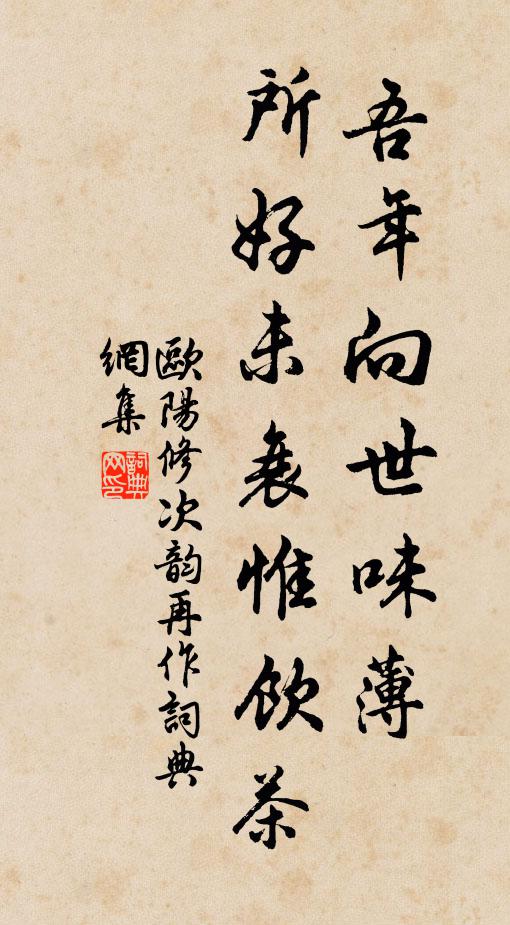 吾年向世味薄
所好未衰惟飲茶
歐陽修次韵再作詞典
網集
詞典网印